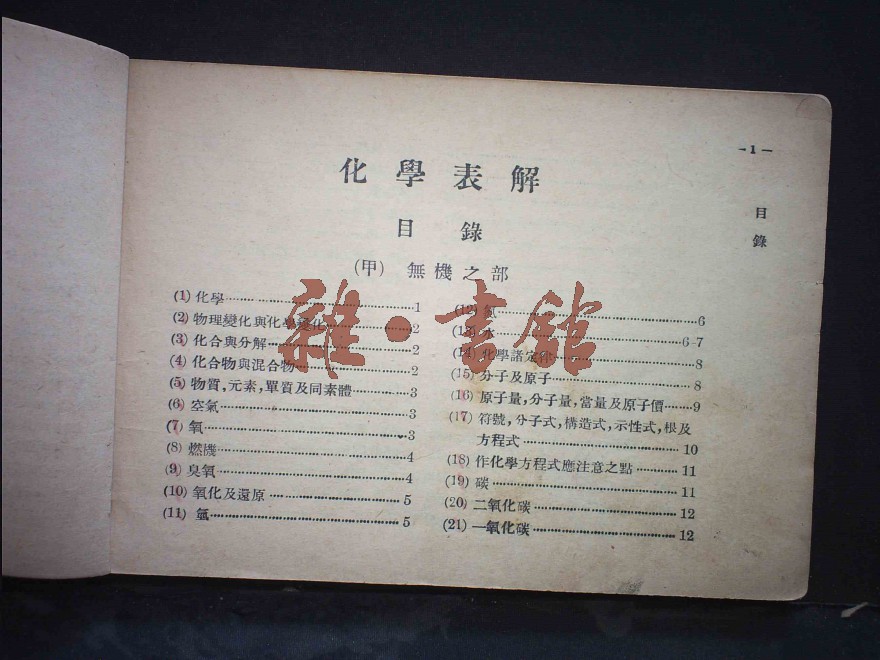 —1—
目錄
化學表解
目錄
(甲) 無機之部
(1) 化學 1
(2) 物理變化與化學變化 2
(3) 化合與分解 2
(4) 化合物與混合物 2
(5) 物質,元素,單質及同素體 3
(6) 空氣 3
(7) 氧 3
(8) 燃機 4
(9) 臭氧 4
(10) 氧化及還原 5
(11) 氫 5
(12) 6
(13) 水 6-7
(14) 化學諸定律 8
(15) 分子及原子 8
(16) 原子量,分子量,當量及原子價 9
(17) 符號,分子式,構造式,示性式,根及
方程式 10
(18) 作化學方程式應注意之點 11
(19) 碳 11
(20) 二氧化碳 12
(21) 一氧化碳 12
雜·書館